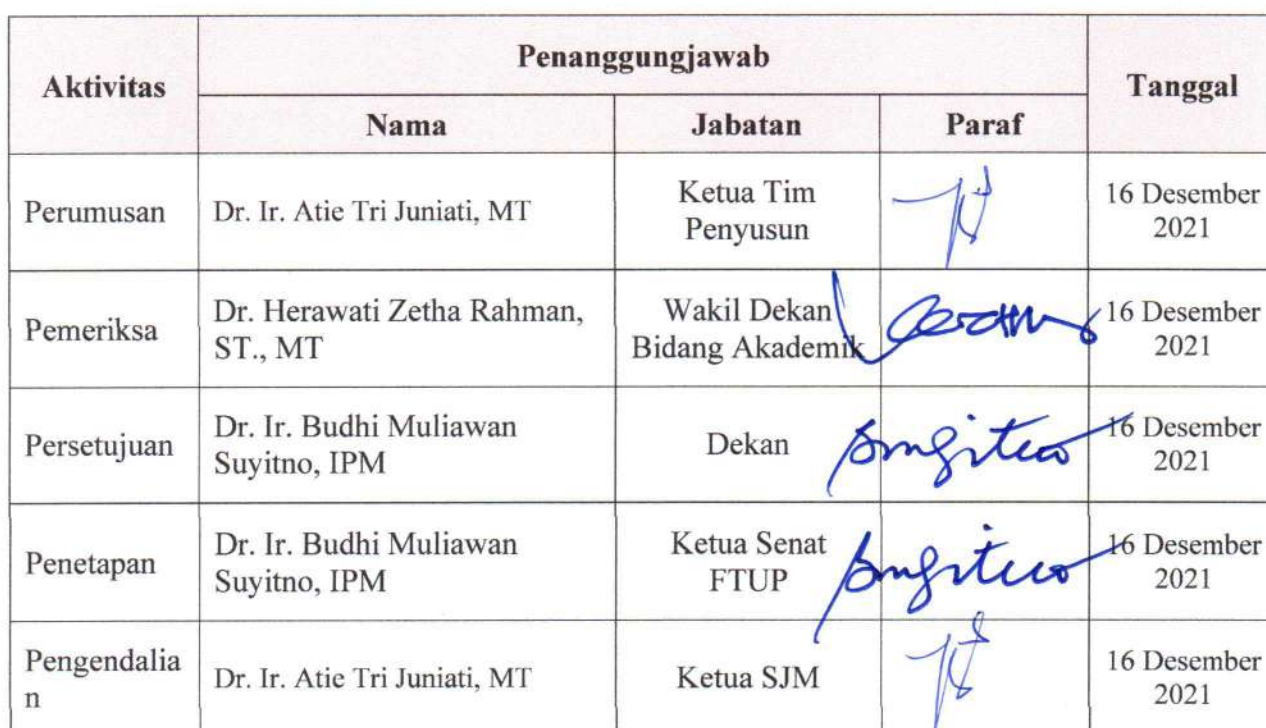 Aktivitas
Penanggungjawab
Tanggal
Nama
Jabatan
Paraf
Perumusan
Dr. Ir. Atie Tri Juniati, MT
Ketua Tim
Penyusun
16 Desember
2021
Pemeriksa
Dr. Herawati Zetha Rahman,
ST., MT
Wakil Dekan
Bidang Akademik
16 Desember
2021
Persetujuan
Dr. Ir. Budhi Muliawan
Suyitno, IPM
Dekan
16 Desember
2021
Penetapan
Dr. Ir. Budhi Muliawan
Suyitno, IPM
Ketua Senat
FTUP
16 Desember
2021
Pengendalia
n
Dr. Ir. Atie Tri Juniati, MT
Ketua SJM
16 Desember
2021